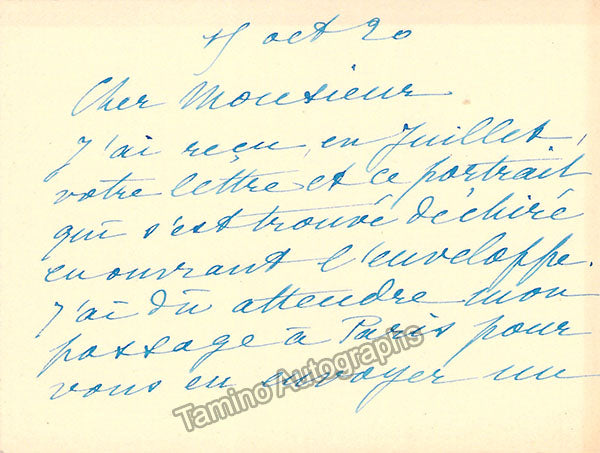 15 oct 20
Cher Monsieur
J'ai reçu, en Juillet,
votre lettre et ce portrait
qui s'est trouvé déchiré
en ouvrant l'enveloppe.
J'ai dû attendre mon
passage à Paris pour
vous en envoyer un
Tamino Autographs